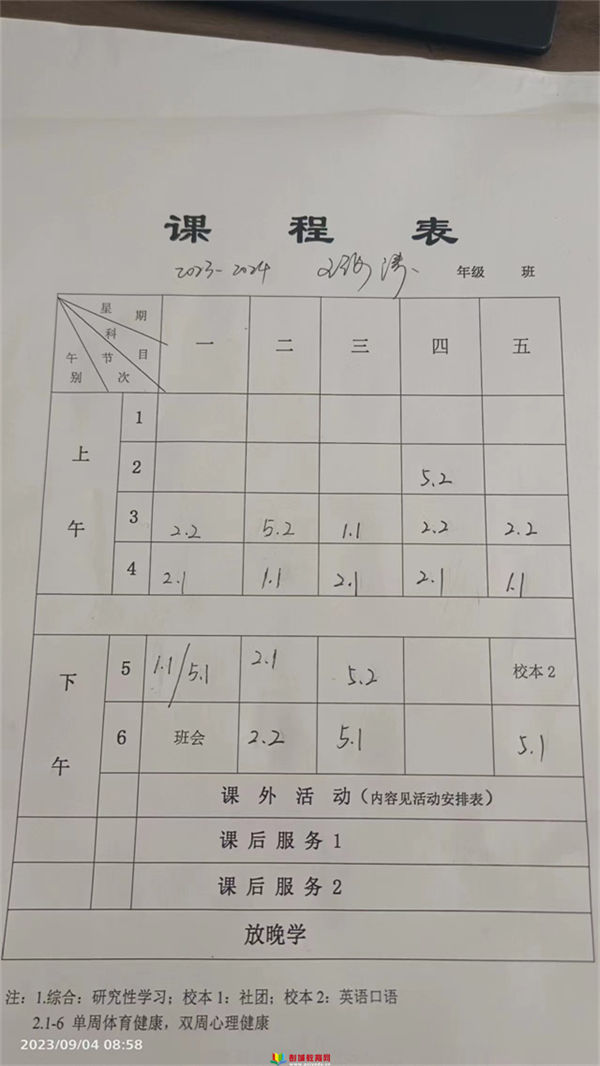 课 程 表
2023-2024 年级 班
星 期
科
午 节 目
别 次
一 二 三 四 五
上午
1
2 5.2
3 2.2 5.2 1.1 2.2 2.2
4 2.1 1.1 2.1 2.1 1.1
下午
5 1.1/5.1 2.1 5.2 校本2
6 班会 2.2 5.1 5.1
课 外 活 动（内容见活动安排表）
课 后 服 务 1
课 后 服 务 2
放晚学
注：1.综合：研究性学习；校本1：社团；校本2：英语口语
2.1-6 单周体育健康，双周心理健康
2023/09/04 08:58